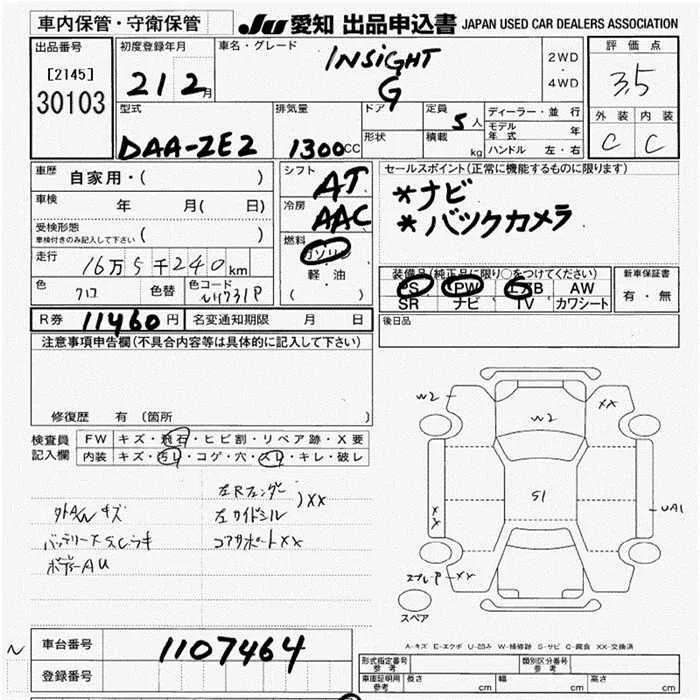 車内保管・守衛保管
JU 愛知 出品申込書 JAPAN USED CAR DEALERS ASSOCIATION
出品番号
[2145]
30103
初度登録年月
21 2月
車名・グレード
INSIGHT
G
2WD
・
4WD
評価点
3.5
外装 内装
C C
型式
DAA-ZE2
排気量
1300cc
ドア
形状
定員 5人
積載 kg
ディーラー・並行
モデル年式 年
ハンドル 左・右
車歴 自家用・( )
車検 年 月( 日)
受検形態
車検付きのみ記入して下さい ( )
走行 16万5千240km
色 クロ 色替 色コード NH731P
シフト AT
冷房 AAC
燃料 ガソリン
軽油
( )
セールスポイント(正常に機能するものに限ります)
*ナビ
*バックカメラ
装備品(純正品に限り○をつけてください)
PS PW エアB AW
SR ナビ TV カワシート
新車保証書
有・無
R券 11460円 名変通知期限 月 日
後日品
注意事項申告欄(不具合内容等は具体的に記入して下さい)
修復歴 有(箇所 )
検査員記入欄
FW キズ・飛石・ヒビ割・リペア跡・X要
内装 キズ・汚レ・コゲ・穴・スレ・キレ・破レ
左Rフェンダー
左サイドシル
)XX
コアサポートXX
キズ
ボデーAU
W2
W2
XX
S1
XX
UA1
XX
スペア
A-キズ E-エクボ U-凹み W-補修跡 S-サビ C-腐食 XX-交換済
N
車台番号 1107464
登録番号
形式指定番号 参考
類別区分番号 参考
車庫証明用 参考 長さ cm 幅 cm 高さ cm